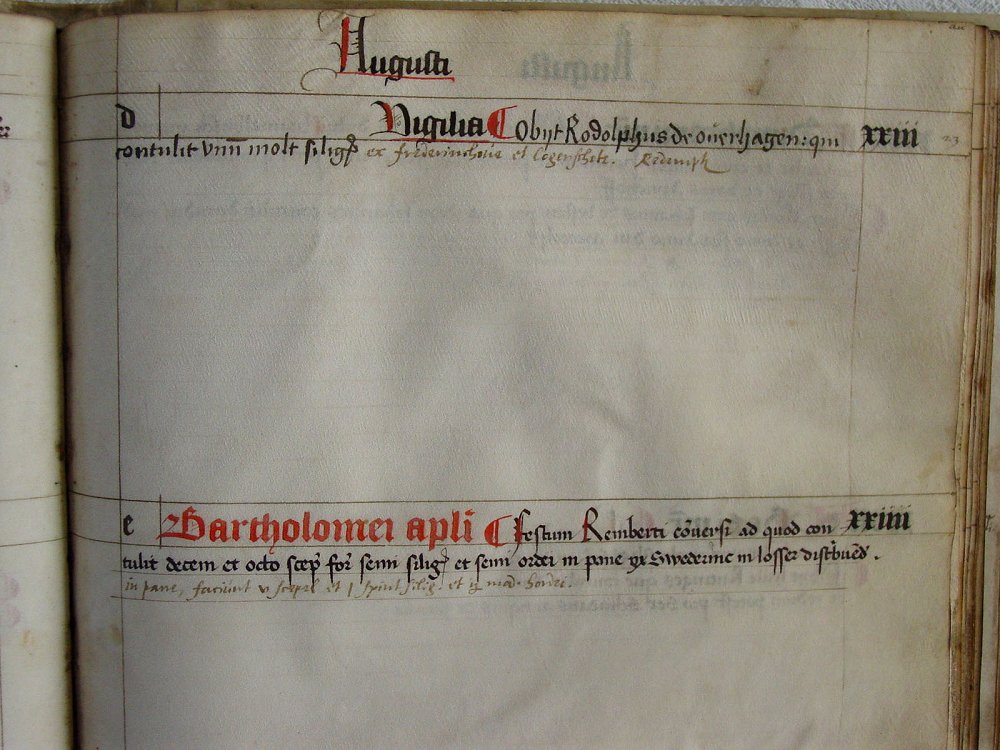 Augusti
d Vigilia Obijt Rodolphus de ouerhagen: qui xxiii 23
contulit vnū molt silig̃ ex et Redemph
e Bartholomei apłi Festum Remberti cōuersi ad quod con xxiiii
tulit decem et octo scep̃ for̃ semi silig̃ et semi ordei in pane Swederinc in losser distbuēd.
in pane, faciunt v scepel et silig. et hordei.